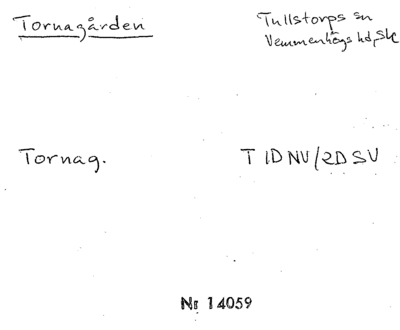 Tornagården
Tullstorps sn
Vemmenhögs hd, Sk
Tornag.
T 1D NV/2D SV
Nr 14059